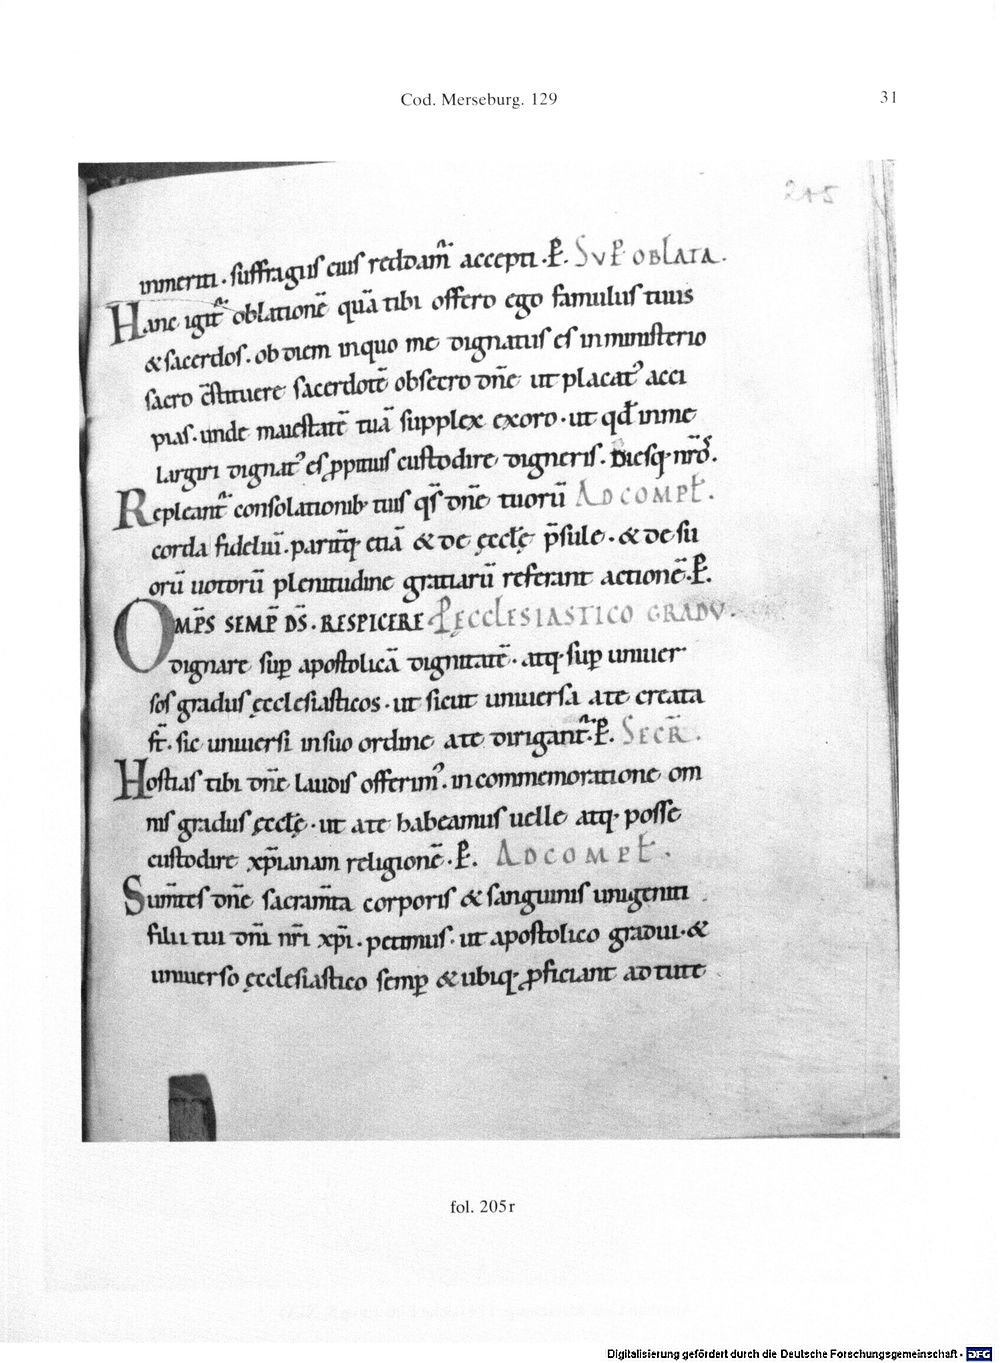 Cod. Merseburg. 129
31
205
inmeriti · suffragiis eius reddam̃ accepti · P̄. SUP̄ OBLATA.
Hanc igit̃ oblationē quā tibi offero ego famulus tuus
& sacerdos · ob diem in quo me dignatus es in ministerio
sacro c̄stituere sacerdotē obsecro dn̄e ut placatꝰ acci
pias · unde maiestatē tuā supplex exoro · ut qđ in me
largiri dignatꝰ es ꝓpitius custodire digneris · Diesq; nr̄os.
Repleant̃ consolationib; tuis qs̄ dn̄e tuorū AD COMPL̄.
corda fideliū · parit̃q; etiā & de ęccl̄ę p̄sule · & de su
orū uotorū plenitudine gratiarū referant actionē · P̄.
OMP̄S SEMP̄ DS̄ · RESPICERE P̄ ĘCCLESIASTICO GRADU.
dignare suꝑ apostolicā dignitatē · atq; suꝑ uniuer
sos gradus ęcclesiasticos · ut sicut uniuersa a te creata
st̄ · sic uniuersi in suo ordine a te dirigant̃ · P̄. SECR̄.
Hostias tibi dn̄e laudis offerimꝰ · in commemoratione om
nis gradus ęccl̄ę · ut a te habeamus uelle atq; posse
custodire xp̄ianam religionē · P̄. AD COMPL̄.
Sum̄tes dn̄e sacram̄ta corporis & sanguinis unigeniti
filii tui dn̄i nr̄i xp̄i · petimus · ut apostolico gradui · &
uniuerso ęcclesiastico semꝑ & ubiq; ꝓficiant ad tute
fol. 205r
Digitalisierung gefördert durch die Deutsche Forschungsgemeinschaft - DFG